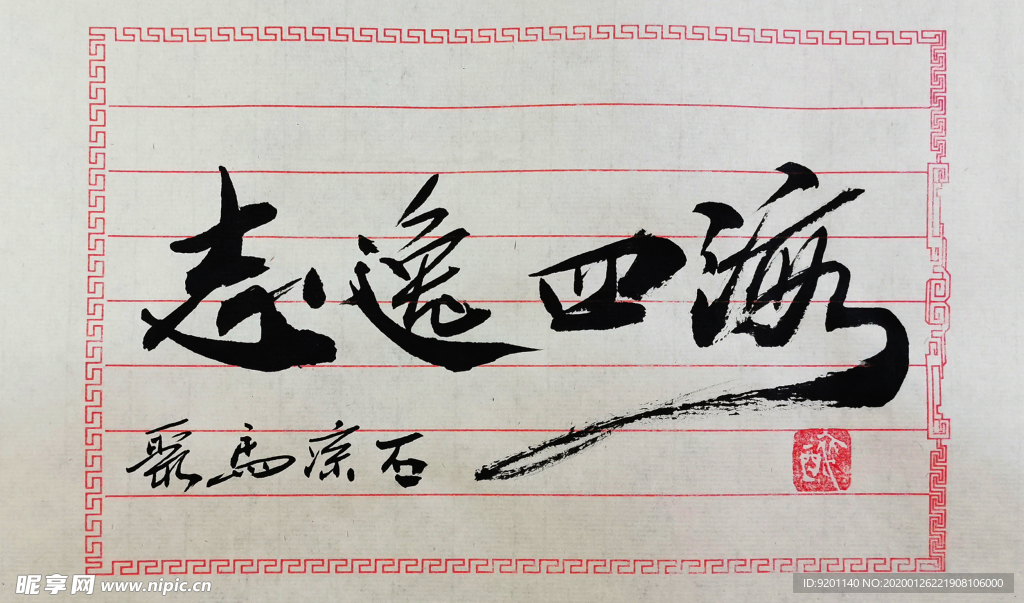 志逸四海
聚马凉石
昵享网 www.nipic.cn
ID:9201140 NO:20200126221908106000